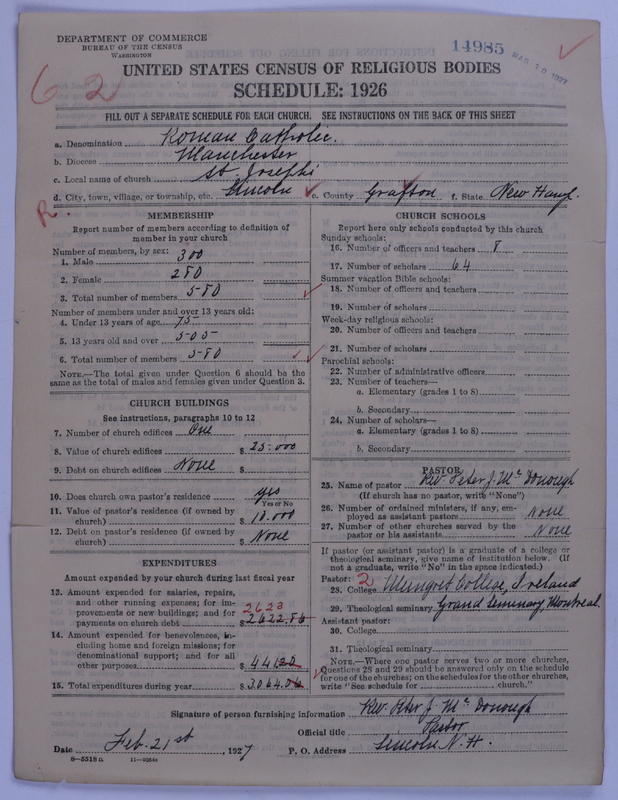 DEPARTMENT OF COMMERCE
BUREAU OF THE CENSUS
WASHINGTON
14985
MAR 10 1927
62
UNITED STATES CENSUS OF RELIGIOUS BODIES
SCHEDULE: 1926
FILL OUT A SEPARATE SCHEDULE FOR EACH CHURCH. SEE INSTRUCTIONS ON THE BACK OF THIS SHEET
a. Denomination Roman Catholic.
b. Diocese Manchester
c. Local name of church St. Josephs
d. City, town, village, or township, etc. Lincoln e. County Grafton f. State New Hamp.
R
MEMBERSHIP
Report number of members according to definition of
member in your church
Number of members, by sex:
1. Male 300
2. Female 280
3. Total number of members 580
Number of members under and over 13 years old:
4. Under 13 years of age 75
5. 13 years old and over 505
6. Total number of members 580
NOTE.—The total given under Question 6 should be
same as the total of males and females given under Question 3.
CHURCH BUILDINGS
See instructions, paragraphs 10 to 12
7. Number of church edifices One
8. Value of church edifices $ 25.000
9. Debt on church edifices None $
10. Does church own pastor's residence yes
Yes or No
11. Value of pastor's residence (if owned by
church) $ 10.000
12. Debt on pastor's residence (if owned by
church) $ None
EXPENDITURES
Amount expended by your church during last fiscal year
13. Amount expended for salaries, repairs,
and other running expenses; for im-
provements or new buildings; and for 2623
payments on church debt $ 2622.86
14. Amount expended for benevolences, in-
cluding home and foreign missions; for
denominational support; and for all
other purposes $ 441.20
15. Total expenditures during year $ 3064.06
CHURCH SCHOOLS
Report here only schools conducted by this church
Sunday schools:
16. Number of officers and teachers 8
17. Number of scholars 64
Summer vacation Bible schools:
18. Number of officers and teachers
19. Number of scholars
Week-day religious schools:
20. Number of officers and teachers
21. Number of scholars
Parochial schools:
22. Number of administrative officers
23. Number of teachers—
a. Elementary (grades 1 to 8)
b. Secondary
24. Number of scholars—
a. Elementary (grades 1 to 8)
b. Secondary
PASTOR
25. Name of pastor Rev Peter J. McDonough
(If church has no pastor, write "None")
26. Number of ordained ministers, if any, em-
ployed as assistant pastors None
27. Number of other churches served by the
pastor or his assistants None
If pastor (or assistant pastor) is a graduate of a college or
theological seminary, give name of institution below. (If
not a graduate, write "No" in the space indicated.)
Pastor: 2
28. College Mungret College, Ireland
29. Theological seminary Grand Seminary, Montreal
Assistant pastor:
30. College
31. Theological seminary
NOTE.—Where one pastor serves two or more churches,
Questions 28 and 29 should be answered only on the schedule
for one of the churches; on the schedules for the other churches,
write "See schedule for church."
Signature of person furnishing information Rev. Peter J. McDonough
Official title Pastor
Date Feb. 21st, 1927 P. O. Address Lincoln N. H.
8—5518 D 11—9254a